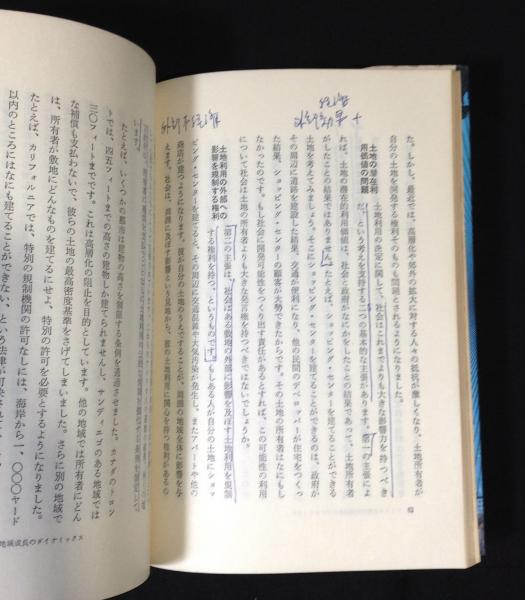 経済
外部効果 +
外部不経済
62
た。しかし、最近では、高層化や郊外の拡大に対する人々の抵抗が激しくなり、土地所有者が
自分の土地を開発する権利そのものも問題とされるようになりました。
土地の潜在利
用価値の問題
土地利用の決定に関して、社会はこれまでよりも大きな影響力を持つべき
だ、という考えを支持する二つの基本的な主張があります。第一の主張によ
れば、土地の潜在的利用価値は、社会と政府がなにかをした結果であって、土地所有者
がしたことの結果ではありません。たとえば、ショッピング・センターを建てることができる
土地を考えてみましょう。そこにショッピング・センターを建てることができるのは、政府が
その周辺に道路を建設した結果、交通が便利になり、他の民間のデベロッパーが住宅をつくっ
た結果、ショッピング・センターの顧客が大勢できたからです。その土地の所有者はなにもし
なかったのです。もし社会に開発可能性をつくり出す責任があるとすれば、この可能性の利用
について社会は土地の所有者よりも大きな発言権を持つべきではないでしょうか。
土地利用の外部への
影響を規制する権利
第二の主張は、社会はある敷地の外部に影響を及ぼす土地利用を規制
する権利を持つ、というものです。もしある人が自分の土地にショッ
ピング・センターを建てると、その周辺に交通混雑や大気汚染が発生し、またアパートや他の
商店が建つようになります。彼が自分の土地のうえですることが、周囲の地域全体に影響を与
えます。社会は、周囲に及ぼす影響という見地から、彼の土地利用に関心を持つ権利があるの
です。
たとえば、いくつかの都市は建物の高さを制限する条例を通過させました。カナダのトロン
トでは、四五フィートまでの高さの建物しか建てられませんし、サンディエゴのある地域では
三〇フィートまでです。これは高層化の阻止を目的としています。他の地域では所有者にどん
な補償も支払わないで、彼らの土地の最高密度基準をさげてしまいました。さらに別の地域で
は、所有者が敷地にどんなものを建てるにせよ、特別の許可を必要とするようになりました。
たとえば、カリフォルニアでは、特別の規制機関の許可なしには、海岸から一、〇〇〇ヤード
以内のところにはなにも建てることができない、という法律が可決されて
地域成長のダイナミックス